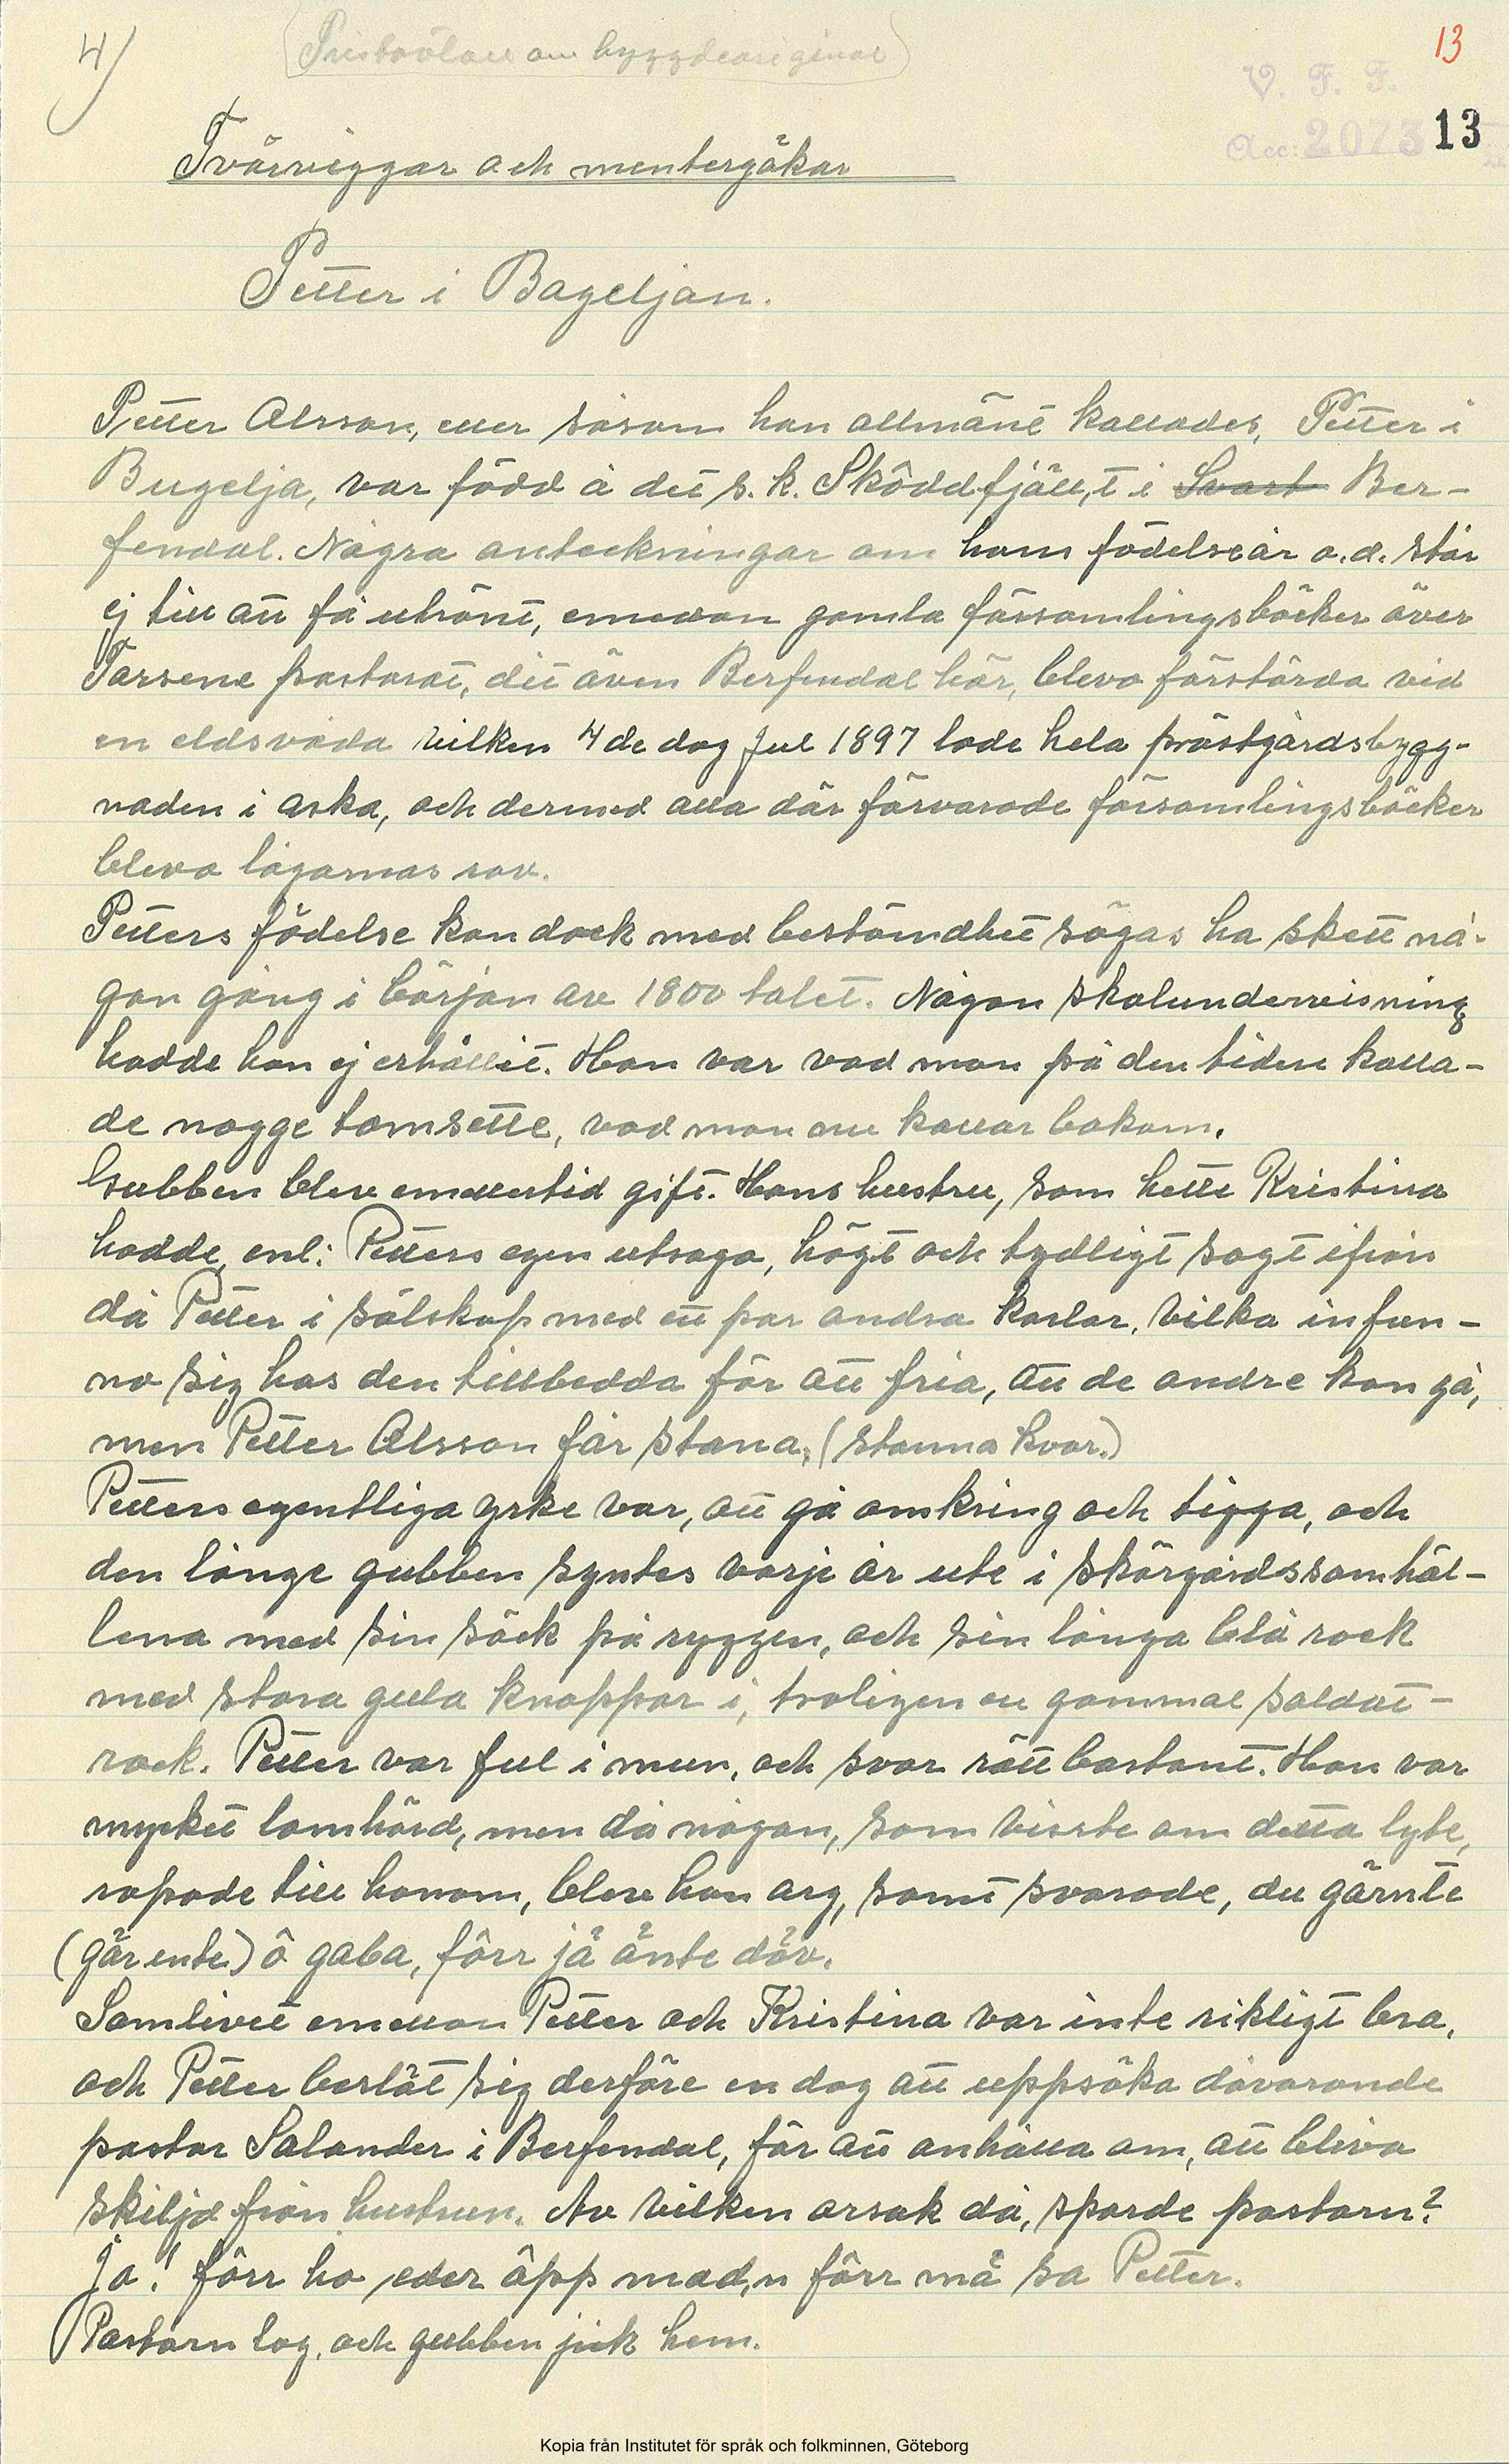 4/
13
V. F. F.
Acc: 2073 13
om bygdeoriginal
Tvärviggar och mentergökar
Petter i Bageljan.
Petter Alsson, eller såsom han allmänt kallades, Petter i
Bugelja, var född å det s.k. Sköddfjället i Svart Ber-
fendal. Några anteckningar om hans födelseår o.d. står
ej till att få utrönt, emedan gamla församlingsböcker över
Torsene pastorat, dit även Berfendal hör, blevo förstörda vid
en eldsvåda vilken 4de dag Jul 1897 lade hela prästgårdsbygg-
naden i aska, och dermed alla där förvarade församlingsböcker
blevo lågornas rov.
Petters födelse kan dock med bestämdhet sägas ha skett nå-
gon gång i början av 1800 talet. Någon skolundervisning
hadde han ej erhållit. Han var vad man på den tiden kalla-
de nogge tomsette, vad man nu kallar bakom.
Gubben blev emellertid gift. Hans hustru, som hette Kristina
hadde, enl: Petters egen utsago, högt och tydligt sagt ifrån
då Petter i sälskap med ett par andra karlar, vilka infun-
no sig hos den tillbedda för att fria, att de andre kan gå,
men Petter Alsson får stana, (stanna kvar.)
Petters egentliga yrke var, att gå omkring och tigga, och
den långe gubben syntes varje år ute i skärgårdssamhäl-
lena med sin säck på ryggen, och sin långa blå rock
med stora gula knappar i, troligen en gammal soldat-
rock. Petter var ful i mun, och svor rätt bastant. Han var
mycket lomhörd, men då någon, som visste om detta lyte,
ropade till honom, blev han arg, samt svarade, du gärnte
(gär ente) ô gaba, förr jå änte döv.
Samlivet emellan Petter och Kristina var inte riktigt bra,
och Petter beslöt sig derföre en dag att uppsöka dåvarande
pastor Salander i Berfendal, för att anhålla om, att bliva
skiljd från hustrun. Av vilken orsak då, sporde pastorn?
Ja! förr ho eder ôpp mad,n förr må sa Petter.
Pastorn log, och gubben jick hem.
Kopia från Institutet för språk och folkminnen, Göteborg